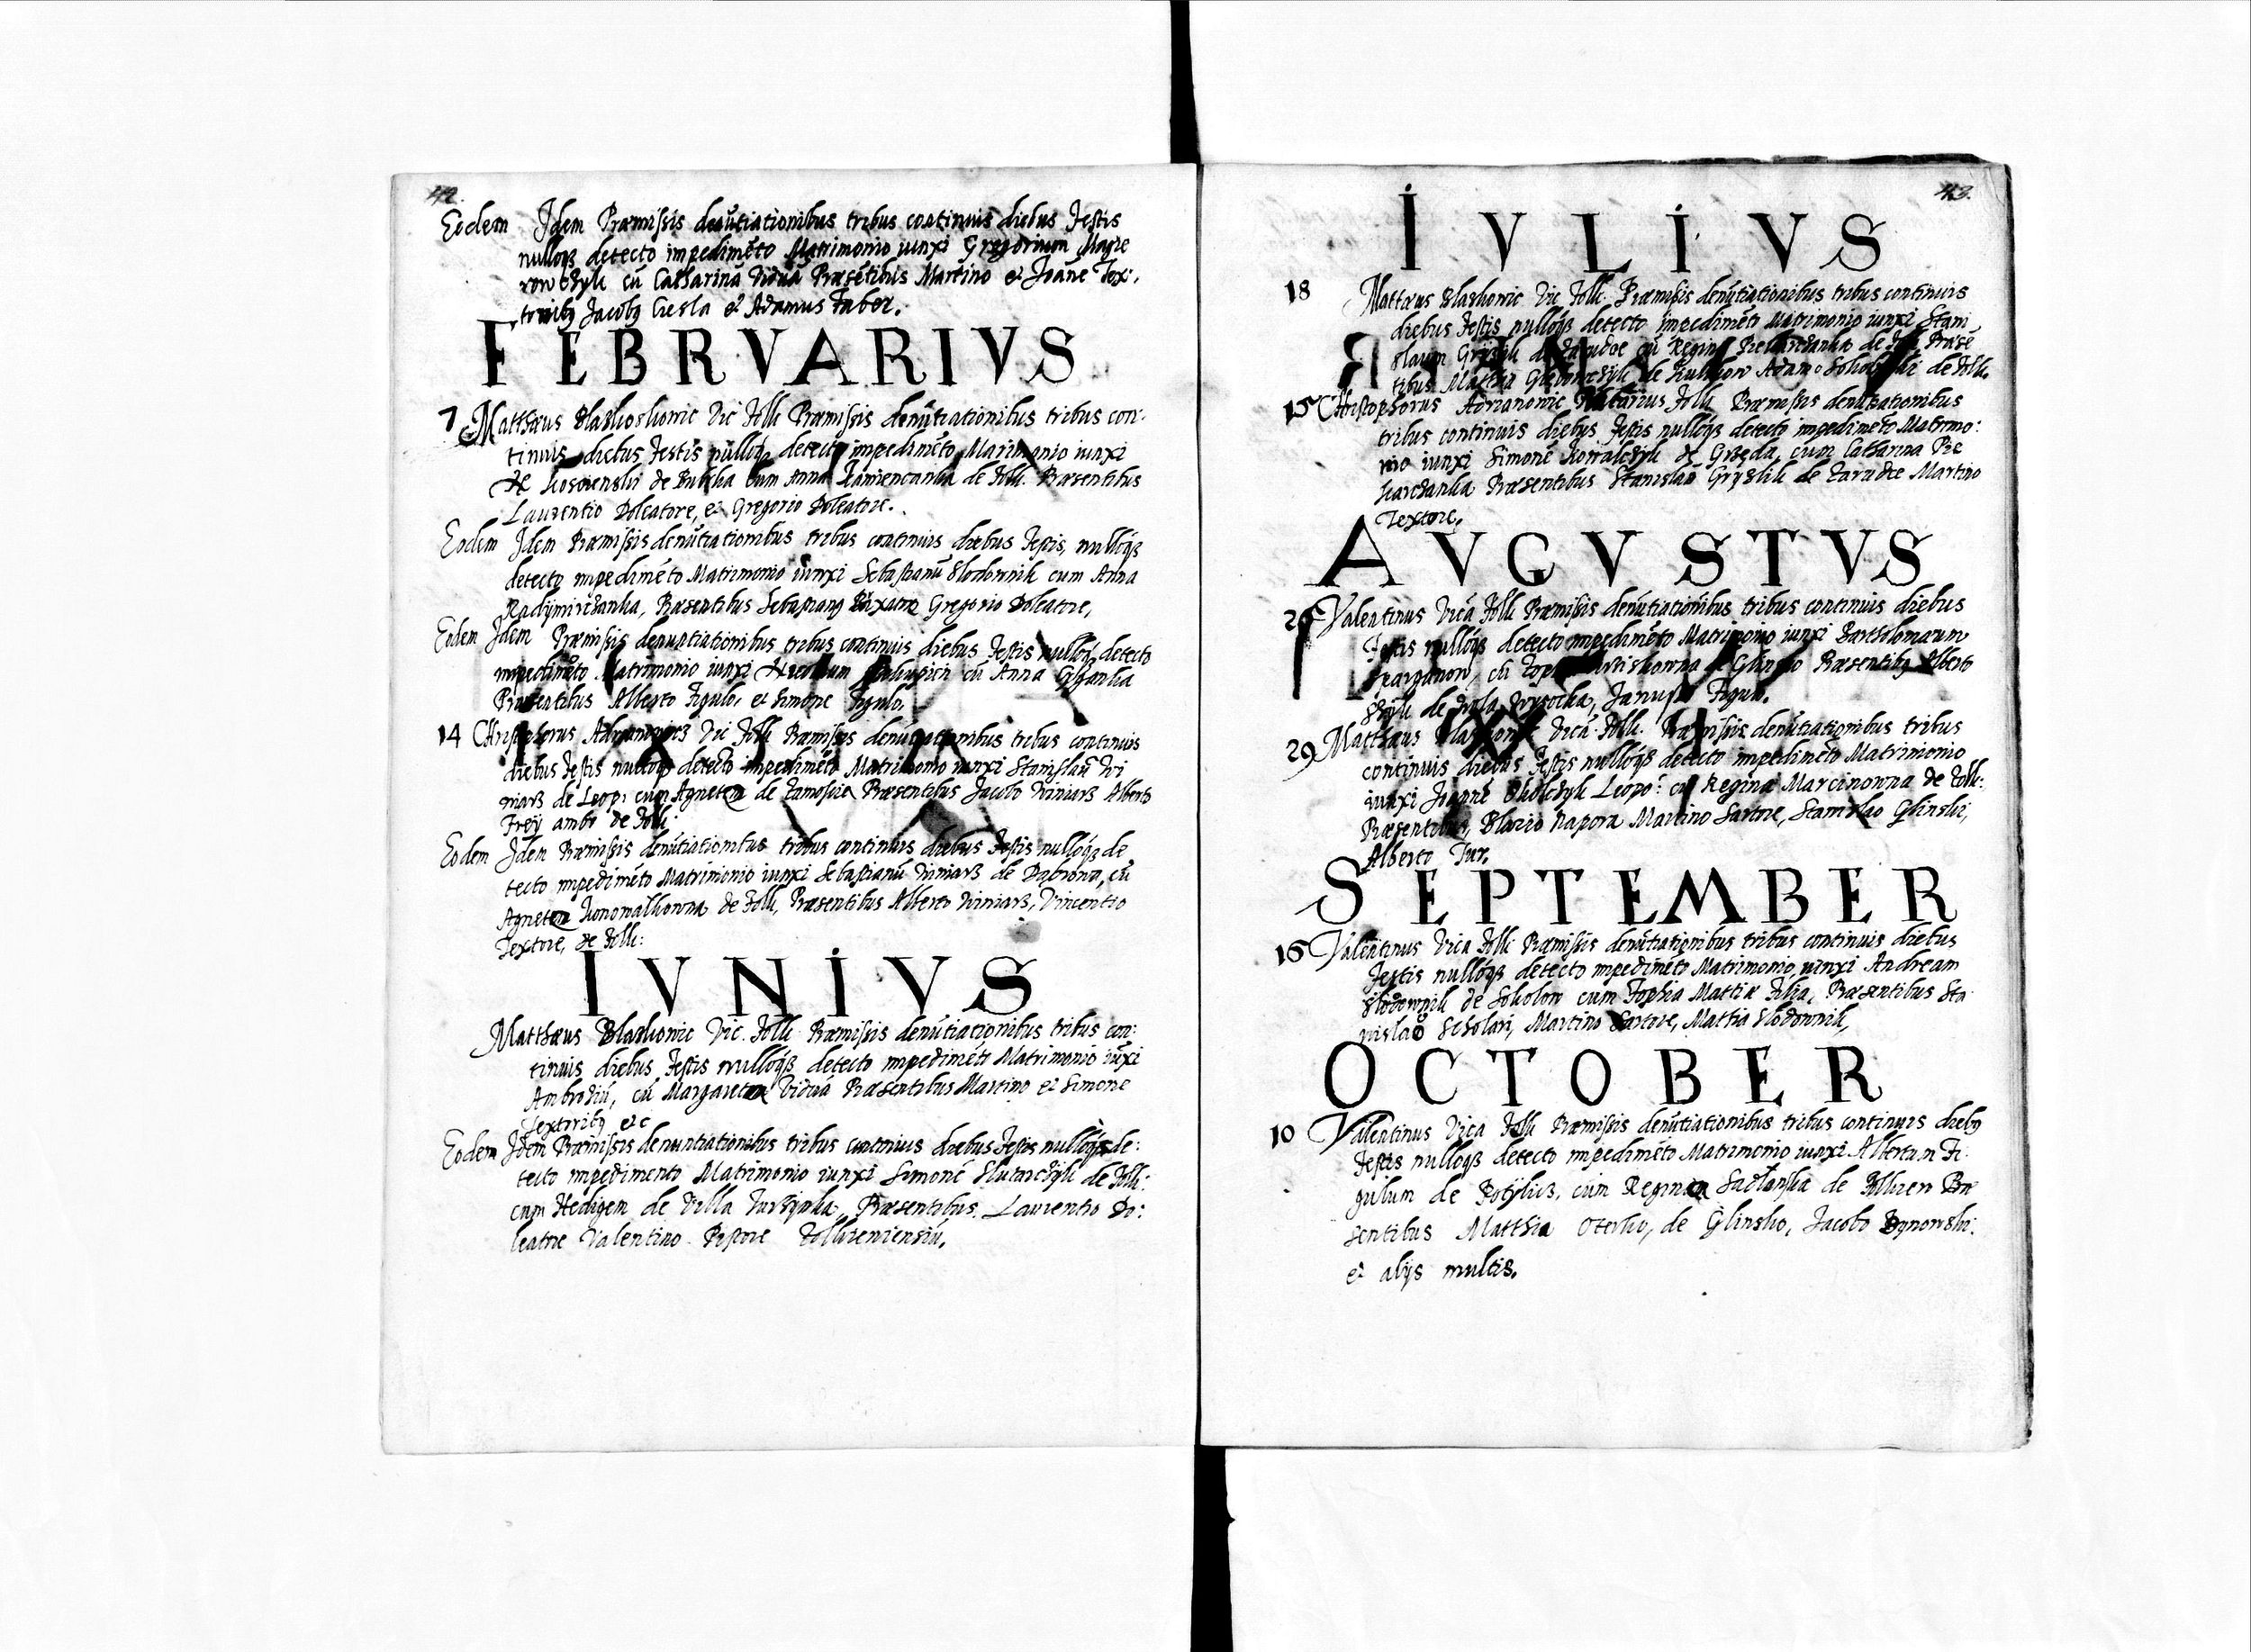 42.
Eodem Idem Præmissis denũtiationibus tribus continuis diebus Festis
nulloq₃ detecto impedimẽto Matrimonio iunxi Gregorium Magie
rowczyk cũ Catharina Viduã Præsẽtibus Martino et Joãne Tex:
torib₉ Jacob₉ Ciesla et Adamus Faber.
FEBRVARIVS
7 Matthæus Vic Folk Præmissis denũtiationibus tribus con:
tinuis diebus Festis nulloq₃ detecto impedimẽto Marimonio iunxi
de cum Anna de Folk. Præsentibus
Laurentio Doleatore, et Gregorio Doleatore.
Eodem Idem Præmissis denũtiationibus tribus continuis diebus Festis, nulloq₃
detecto impedimẽto Matrimonio iunxi Sebastianũ Slodownik cum Anna
Radymirczanka, Præsentibus Sebastiano Gregorio Doleatore,
Eodem Idem Præmissis denuntiationibus tribus continuis diebus Festis nulloq₃ detecto
impedimẽto Matrimonio iunxi cũ Anna
Præsentibus Alberto Figulo, et Simone Figulo,
14 Christophorus Vic Folk Præmissis denũtiationibus tribus continuis
diebus Festis nulloq₃ detecto impedimẽto Matrimonio iunxi Stanislaũ Wi
niarz de Leop: cum Agnetem de Zamoscie Præsentibus Jacobo Winiarz Alberto
Frey ambo de Folk:
Eodem Idem Præmissis denũtiationibus tribus continuis diebus Festis nulloq₃ de
tecto impedimẽto Matrimonio iunxi Sebastianũ Winiarz de cũ
Agnetem Konowalkowna de Folk, Præsentibus Alberto Winiarz, Vincentio
Textore, de Folk:
IVNIVS
Matthæus Blaskowic Vic. Folk Præmissis denũtiationibus tribus con:
tinuis diebus Festis nulloq₃ detecto impedimẽto Matrimonio iũxi
Ambrosiũ, cũ Margaretam Viduã Præsentibus Martino et Simone
Textorib₉ etc
Eodem Idem Præmissis denuntiationibus tribus continuis diebus Festis nulloq₃ de:
tecto impedimento Matrimonio iunxi Simonẽ de Folk:
cum Hedigem de Villa Præsentibus. Laurentio Do:
leatore Valentino Pistore

43.
IVLIVS
18 Mattæus Blaskowic Vic Folk. Præmissis denũtiationibus tribus continuis
diebus Festis nulloq₃ detecto impedimẽto Matrimonio iunxi Stani
slaum de cũ Regina de Præsẽ
tibus Matthia de Adamo de Folk.
15 Christophorus Adrianowic Folk Præmissis denũtiationibus
tribus continuis diebus Festis nulloq₃ detecto impedimẽto Matrimo:
nio iunxi Simonẽ Kowalczyk de Grzęda, cum Catharina Pie
karczanka Præsentibus Stanislao de Martino
Textore,
AVGVSTVS
26 Valentinus Vicã Folk Præmissis denũtiationibus tribus continuis diebus
Festis nulloq₃ detecto impedimẽto Matrimonio iunxi Bartholomæum
cũ de Glinsko Præsentib₉ Alberto
de Wola Wysocka,
29 Matthæus Vicã Folk. Præmissis denũtiationibus tribus
continuis diebus Festis nulloq₃ detecto impedimẽto Matrimonio
iunxi Joannẽ Leopo: cũ Regina Marcinowna de Folk:
Præsentibus, Blasio Martino Sartore, Stanislao Glinski,
Alberto Tur.
SEPTEMBER
16 Valentinus Vica Folk Præmissis denũtiationibus tribus continuis diebus
Festis nulloq₃ detecto impedimẽto Matrimonio iunxi Andream
Slodownik de Sokolow cum Zophia Mattiæ Filia, Præsentibus Sta
nislao Scholari, Martino Sartore, Mathia Slodownik,
OCTOBER
10 Valentinus Vica Folk Præmissis denũtiationibus tribus continuis dieb₉
Festis nulloq₃ detecto impedimẽto Matrimonio iunxi Albertum Fi
gulum de Potylicz, cum Regina de Præ
sentibus Matthia de Glinsko, Jacobo
et alijs multis.